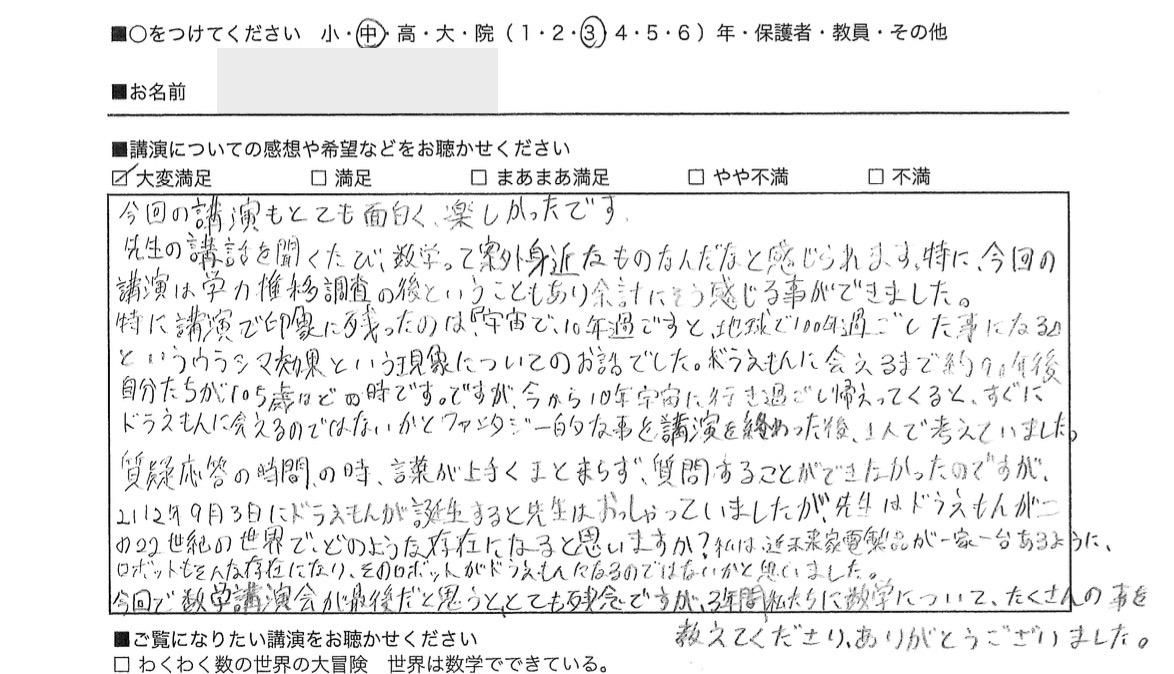 ■○をつけてください 小・中・高・大・院（1・2・3・4・5・6）年・保護者・教員・その他
■お名前
■講演についての感想や希望などをお聴かせください
☑ 大変満足 □ 満足 □ まあまあ満足 □ やや不満 □ 不満
今回の講演もとても面白く、楽しかったです。
先生の講話を聞くたび、数学って案外身近なものなんだなと感じられます。特に、今回の
講演は学力推移調査の後ということもあり余計にそう感じる事ができました。
特に講演で印象に残ったのは『宇宙で、10年過ごすと、地球で100年過ごした事になる』
というウラシマ効果という現象についてのお話でした。ドラえもんに会えるまで約90年後
自分たちが105歳ほどの時です。ですが、今から10年宇宙に行き過ごし帰えってくると、すぐに
ドラえもんに会えるのではないかとファンタジー的な事を講演を終わった後、1人で考えていました。
質疑応答の時間の時、言葉が上手くまとまらず、質問することができたかったのですが、
2112年9月3日にドラえもんが誕生すると先生はおっしゃっていましたが、先生はドラえもんがこ
の22世紀の世界で、どのような存在になると思いますか？私は近未来家電製品が一家一台あるように、
ロボットもそんな存在になり、そのロボットがドラえもんになるのではないかと思いました。
今回で数学講演会が最後だと思うと、とても残念ですが、3年間私たちに数学について、たくさんの事を
教えてくださり、ありがとうございました。
■ご覧になりたい講演をお聴かせください
□ わくわく数の世界の大冒険 世界は数学でできている。